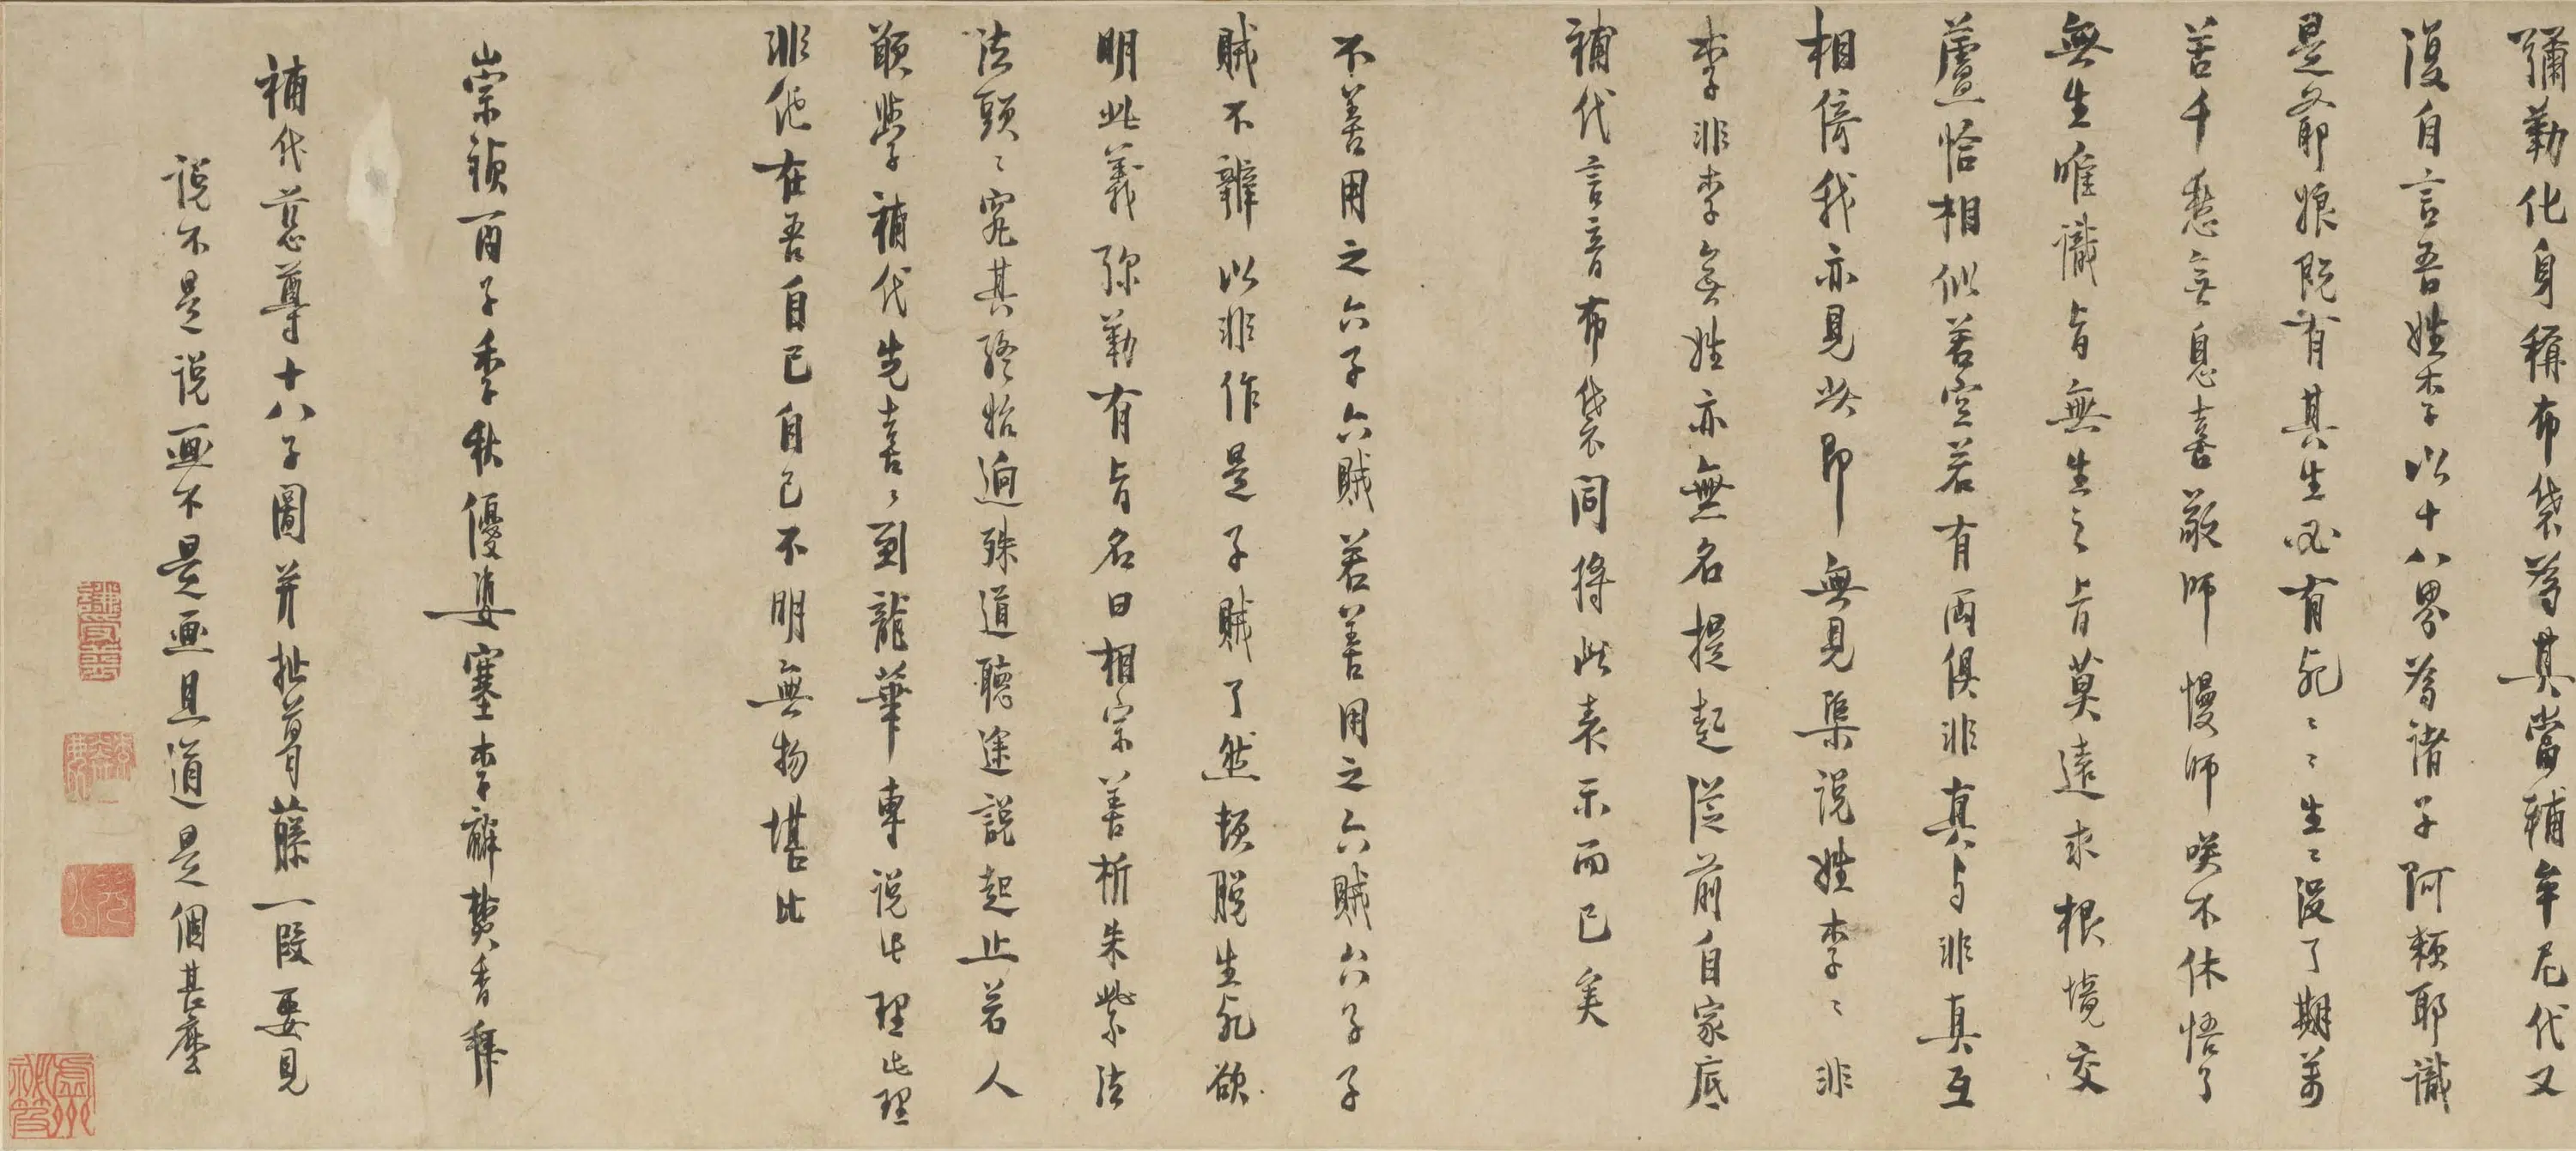 彌勒化身稱布袋為其當輔牟尼代又
復自言吾姓李以十八界為諸子阿賴耶識
是爺娘既有其生必有死〻〻生〻沒了期萬
苦千愁無息喜敬師慢師笑不休悟了
無生唯識旨無生之旨莫遠求根境交
蘆恰相似若空若有兩俱非真与非真互
相倚我亦見此即無見集說姓李〻非
李非李無姓亦無名提起從前自家底
補代言音布袋同將此表示而已矣
不善用之六子六賊若善用之六賊六子子
賊不辨以非作是子賊了然頓脫生死欲
明此義弥勒有旨名曰相宗善析朱紫法
法頭〻究其終始迥殊道聽途說起止若人
願學補代先喜〻到龍華專說此理此理
非他在吾自己自己不明無物堪比
崇禎丙子季秋優婆塞李麟熱香拜
補代慈尊十八子圖并扯葛藤一段要見
說不是說画不是画且道是個甚麼